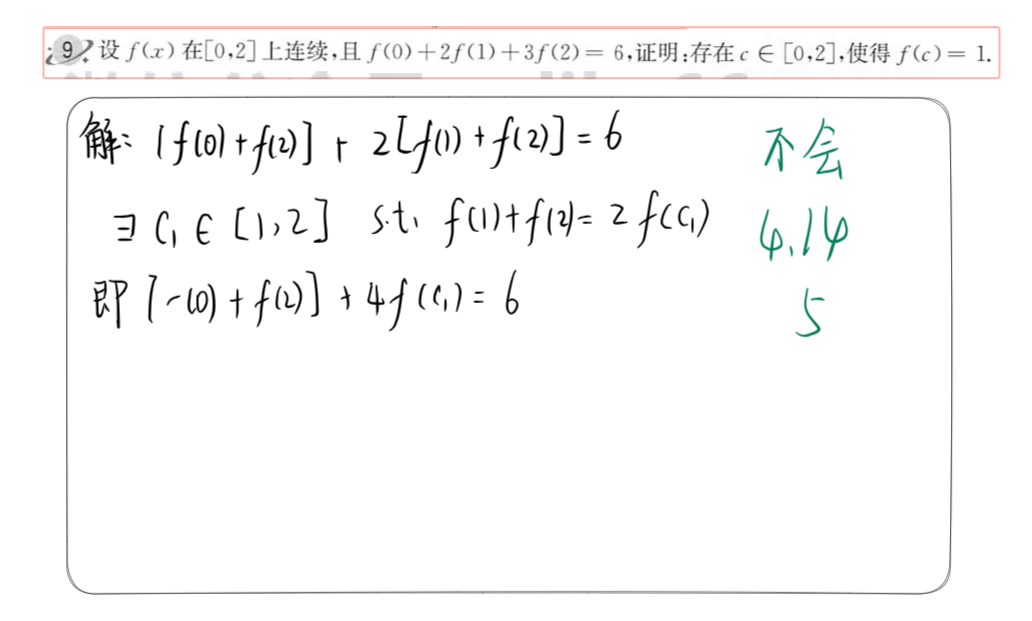 9. 设 f(x) 在[0,2]上连续,且 f(0)+2f(1)+3f(2)= 6,证明:存在 c ∈ [0,2],使得 f(c)= 1.
解: [f(0)+f(2)] + 2[f(1)+f(2)]=6
不会
∃ C₁ ∈ [1,2] s.t. f(1)+f(2)= 2f(C₁)
4.14
即 [f(0)+f(2)]+4f(C₁)=6
5